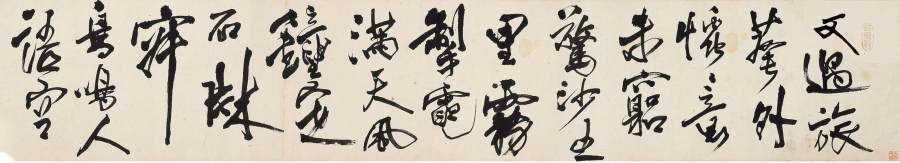 又過旅
葊外
懷意
未窮
驚沙五
里霧
掣電
滿天風
鐘定
石林
鳥鳴人
語空